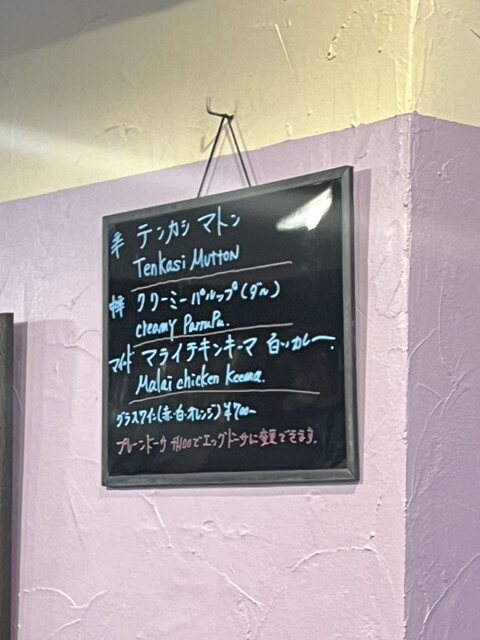 羊 テンカシ マトン
Tenkasi Mutton
クリーミーパルップ(ダル)
creamy Parrupu.
マイルド マライチキンキーマ 白いカレー.
Malai chicken Keema.
グラスワイン(赤・白・オレンジ)¥700-
プレーンドーサ ¥100でエッグドーサに変更できます.